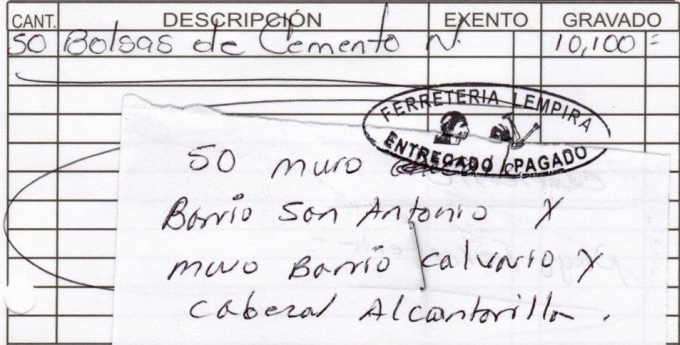 CANT. DESCRIPCIÓN EXENTO GRAVADO
50 Bolsas de Cemento N. 10,100=
FERRETERIA LEMPIRA
ENTREGADO PAGADO
50 muro
Barrio San Antonio y
muro Barrio Calvario y
Cabezal Alcantarilla.